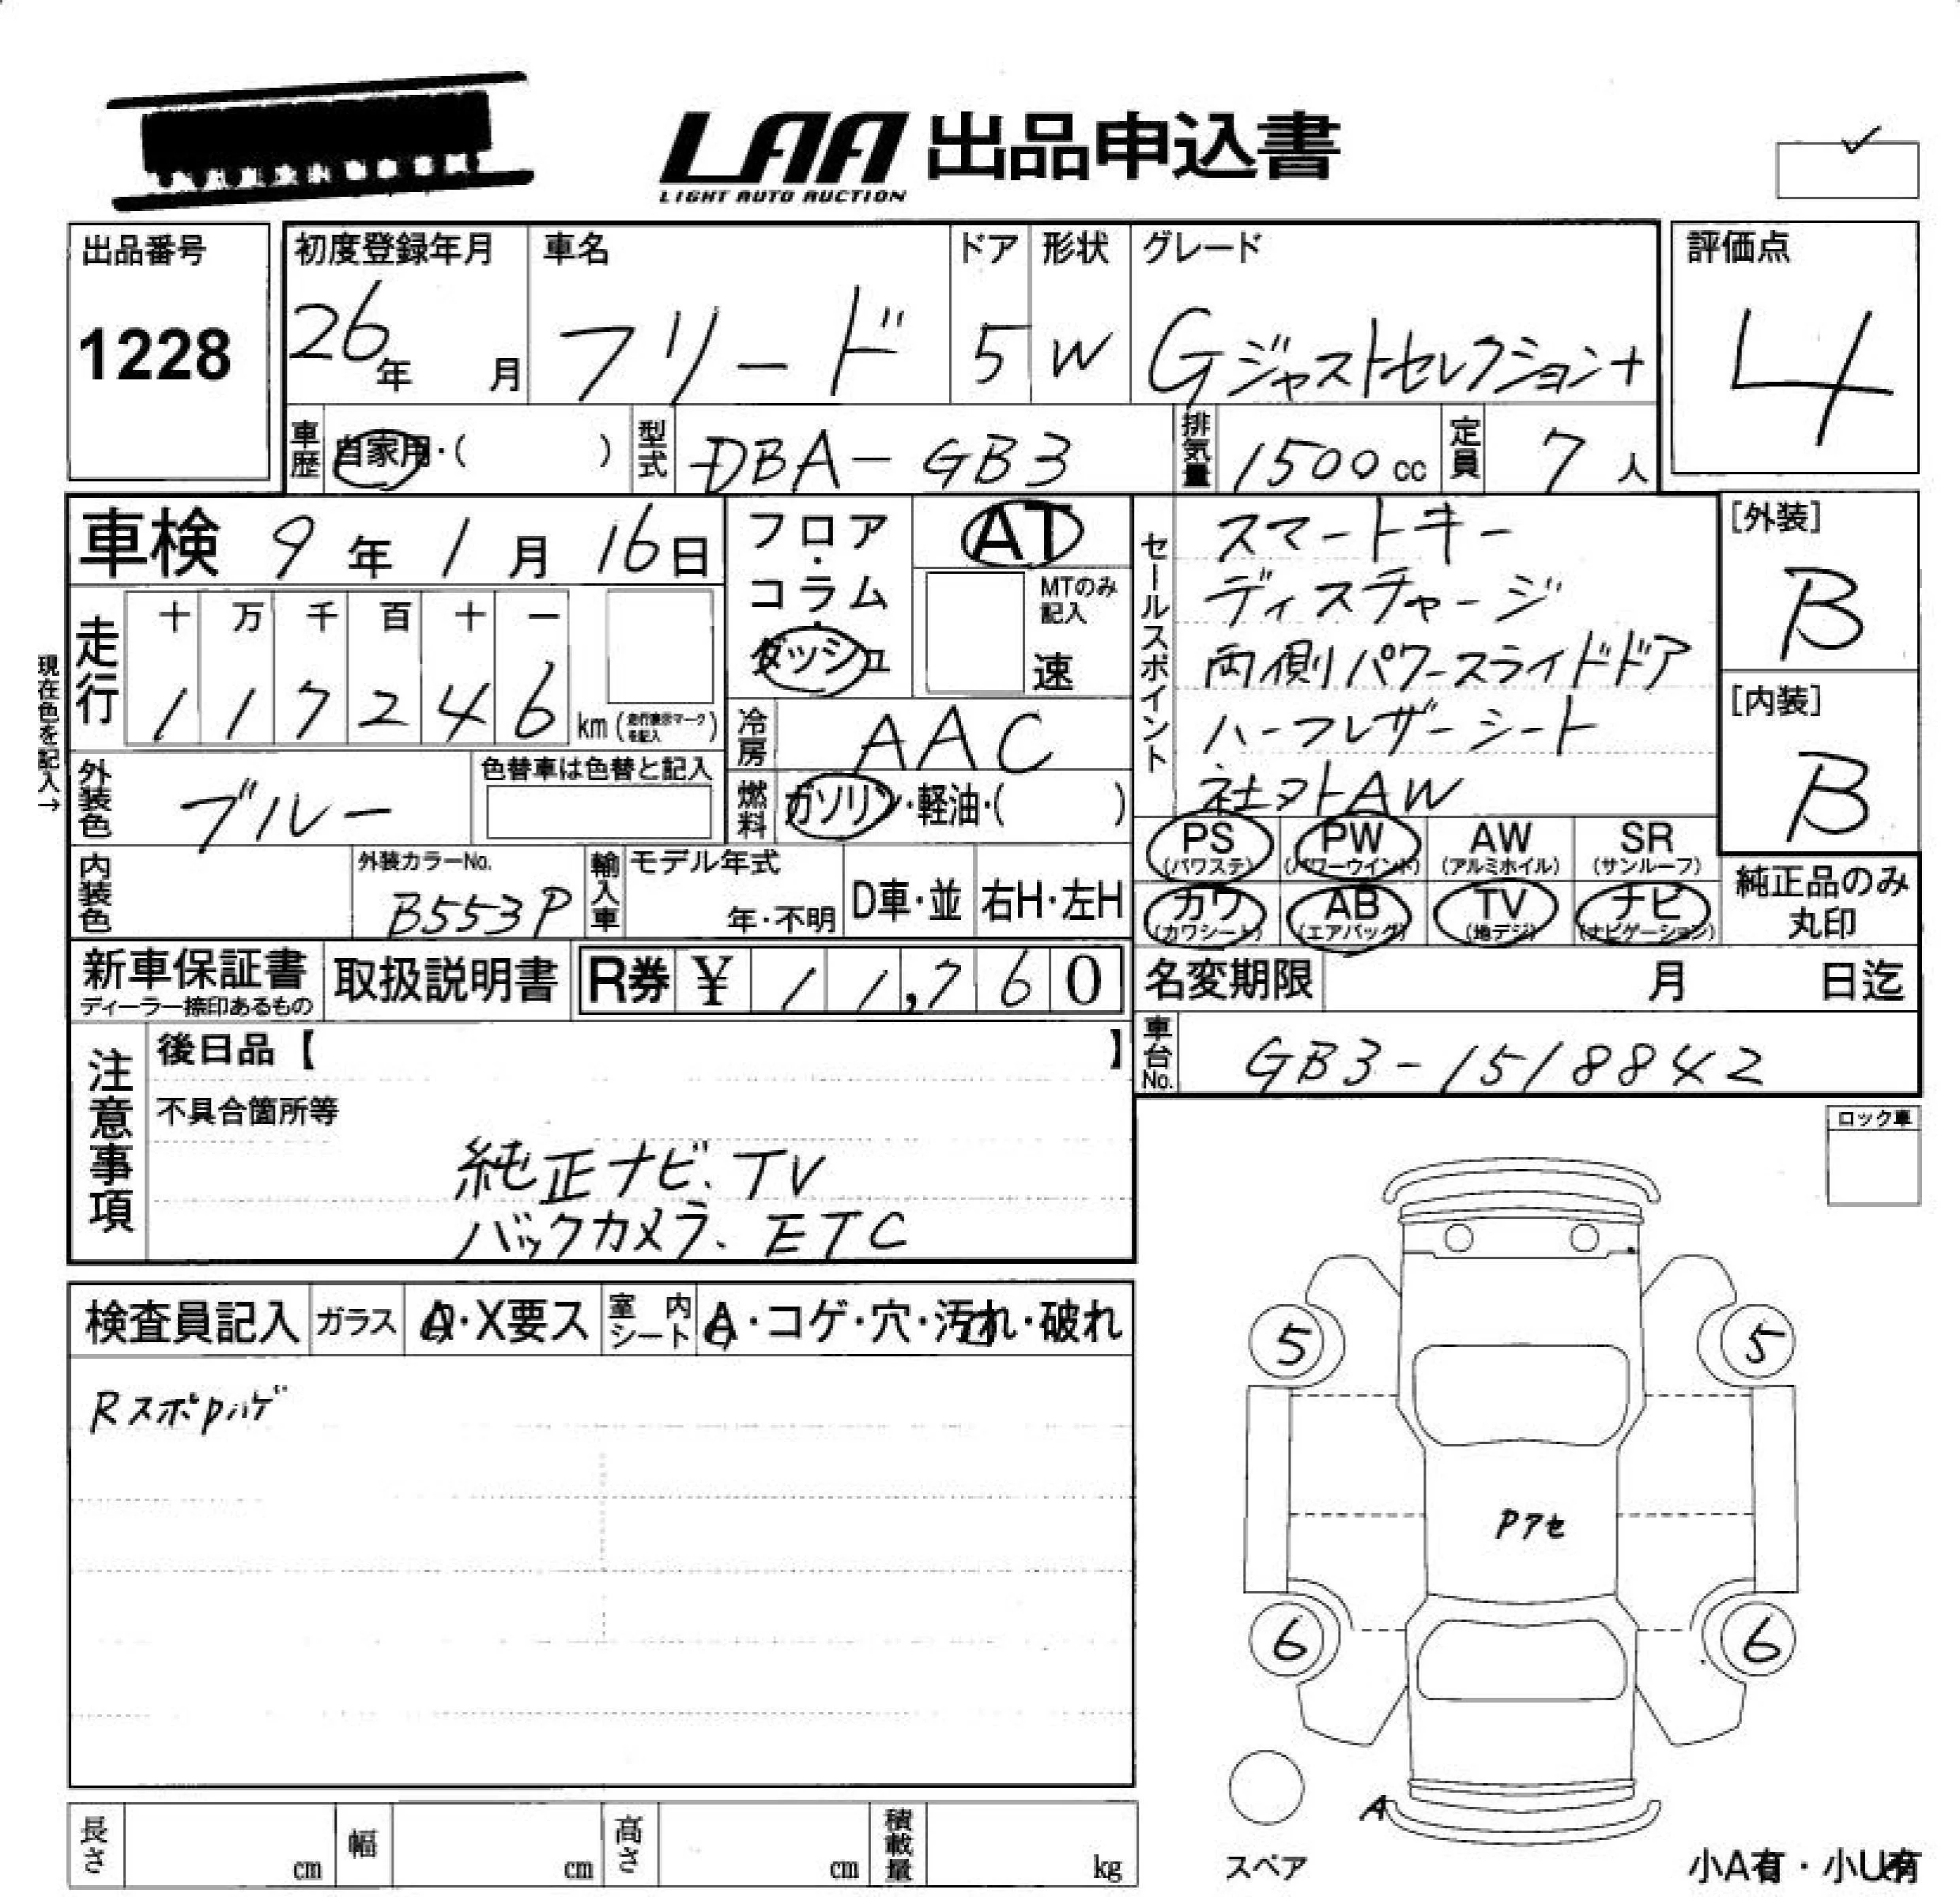 LAA 出品申込書
LIGHT AUTO AUCTION
出品番号
1228
初度登録年月
26年 月
車名
フリード
ドア
5
形状
W
グレード
Gジャストセレクション+
評価点
4
車歴 自家用・( )
型式 DBA-GB3
排気量 1500cc
定員 7人
車検 9年1月16日
フロア・コラム・ダッシュ
AT
MTのみ記入
速
現在色を記入→
走行
十 万 千 百 十 一
1 1 7 2 4 6 km(走行表示マークを記入)
冷房 AAC
燃料 ガソリン・軽油・( )
外装色 ブルー
色替車は色替と記入
内装色
外装カラーNo.
B553P
輸入車
モデル年式
年・不明
D車・並
右H・左H
セールスポイント
スマートキー
ディスチャージ
両側パワースライドドア
ハーフレザーシート
社外AW
[外装]
B
[内装]
B
PS (パワステ)
PW (パワーウインド)
AW (アルミホイル)
SR (サンルーフ)
カワ (カワシート)
AB (エアバッグ)
TV (地デジ)
ナビ (ナビゲーション)
純正品のみ丸印
新車保証書
ディーラー捺印あるもの
取扱説明書
R券 ¥ 11,760
名変期限 月 日迄
車台No. GB3-1518842
注意事項
後日品【 】
不具合箇所等
純正ナビ、TV
バックカメラ、ETC
ロック車
検査員記入
ガラス A・X要ス
室内シート A・コゲ・穴・汚れ・破れ
RスポPハゲ
5
5
Pアセ
6
6
A
スペア
小A有・小U有
長さ cm
幅 cm
高さ cm
積載量 kg